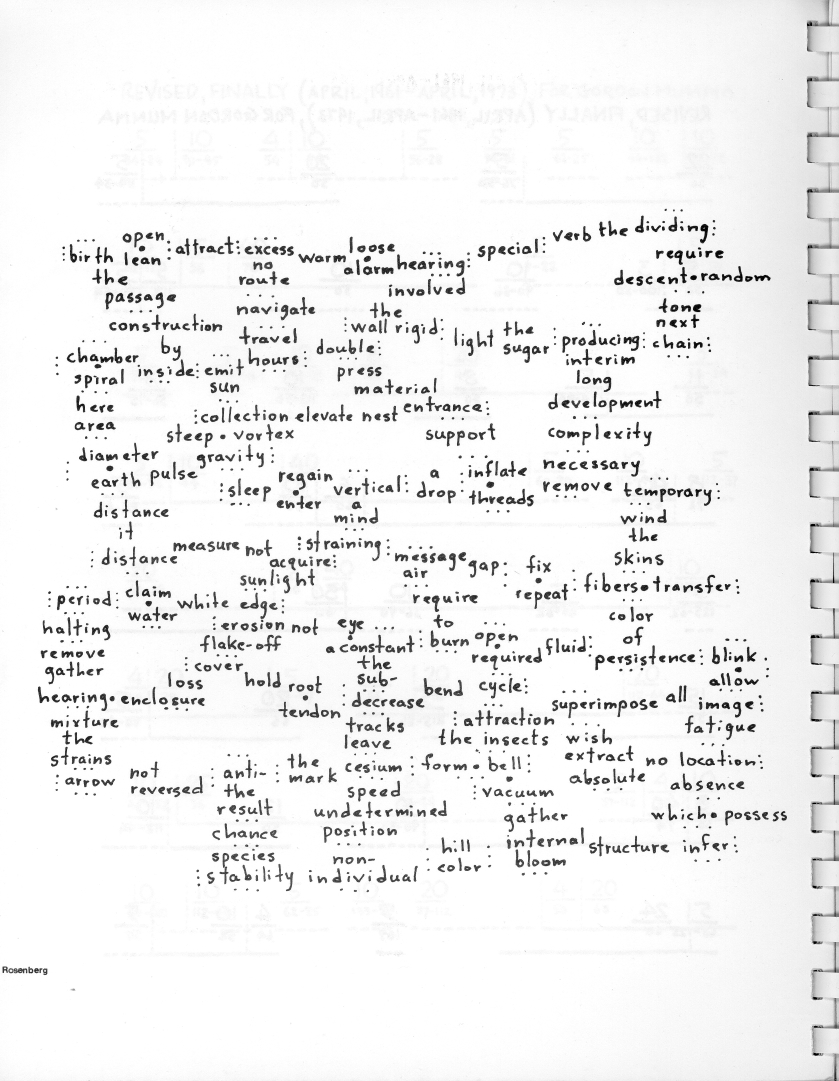 REVISED, FINALLY (APRIL, 1961-APRIL, 1973), FOR GORDON MUMMA
open loose verb the dividing:
:birth lean: attract: excess warm alarm hearing: special: require
the no descent•random
passage route involved
navigate the tone
construction travel :wall rigid: light the :producing: chain: next
: chamber by hours: double: sugar interim
: spiral inside: emit press long
here sun material development
area :collection elevate nest entrance:
steep•vortex support complexity
: diameter gravity: regain a :inflate necessary
earth pulse :sleep enter vertical: drop: threads remove temporary:
distance a wind
it mind the
:distance measure not :straining: :message gap: fix skins
acquire: air
sunlight require repeat: fibers•transfer:
:period: claim white edge: color
halting water :erosion not eye to of
remove flake-off a constant: burn open fluid:
gather :cover the required persistence: blink.
loss hold root sub- bend cycle: allow:
hearing•enclosure tendon :decrease superimpose all image:
mixture tracks :attraction fatigue
the leave the insects wish
strains not :anti- :the cesium: form•bell: extract no location:
:arrow reversed: the mark speed :vacuum absolute absence
result undetermined gather which•possess
chance position :hill internal structure infer:
species non- color: bloom
:stability individual
Rosenberg